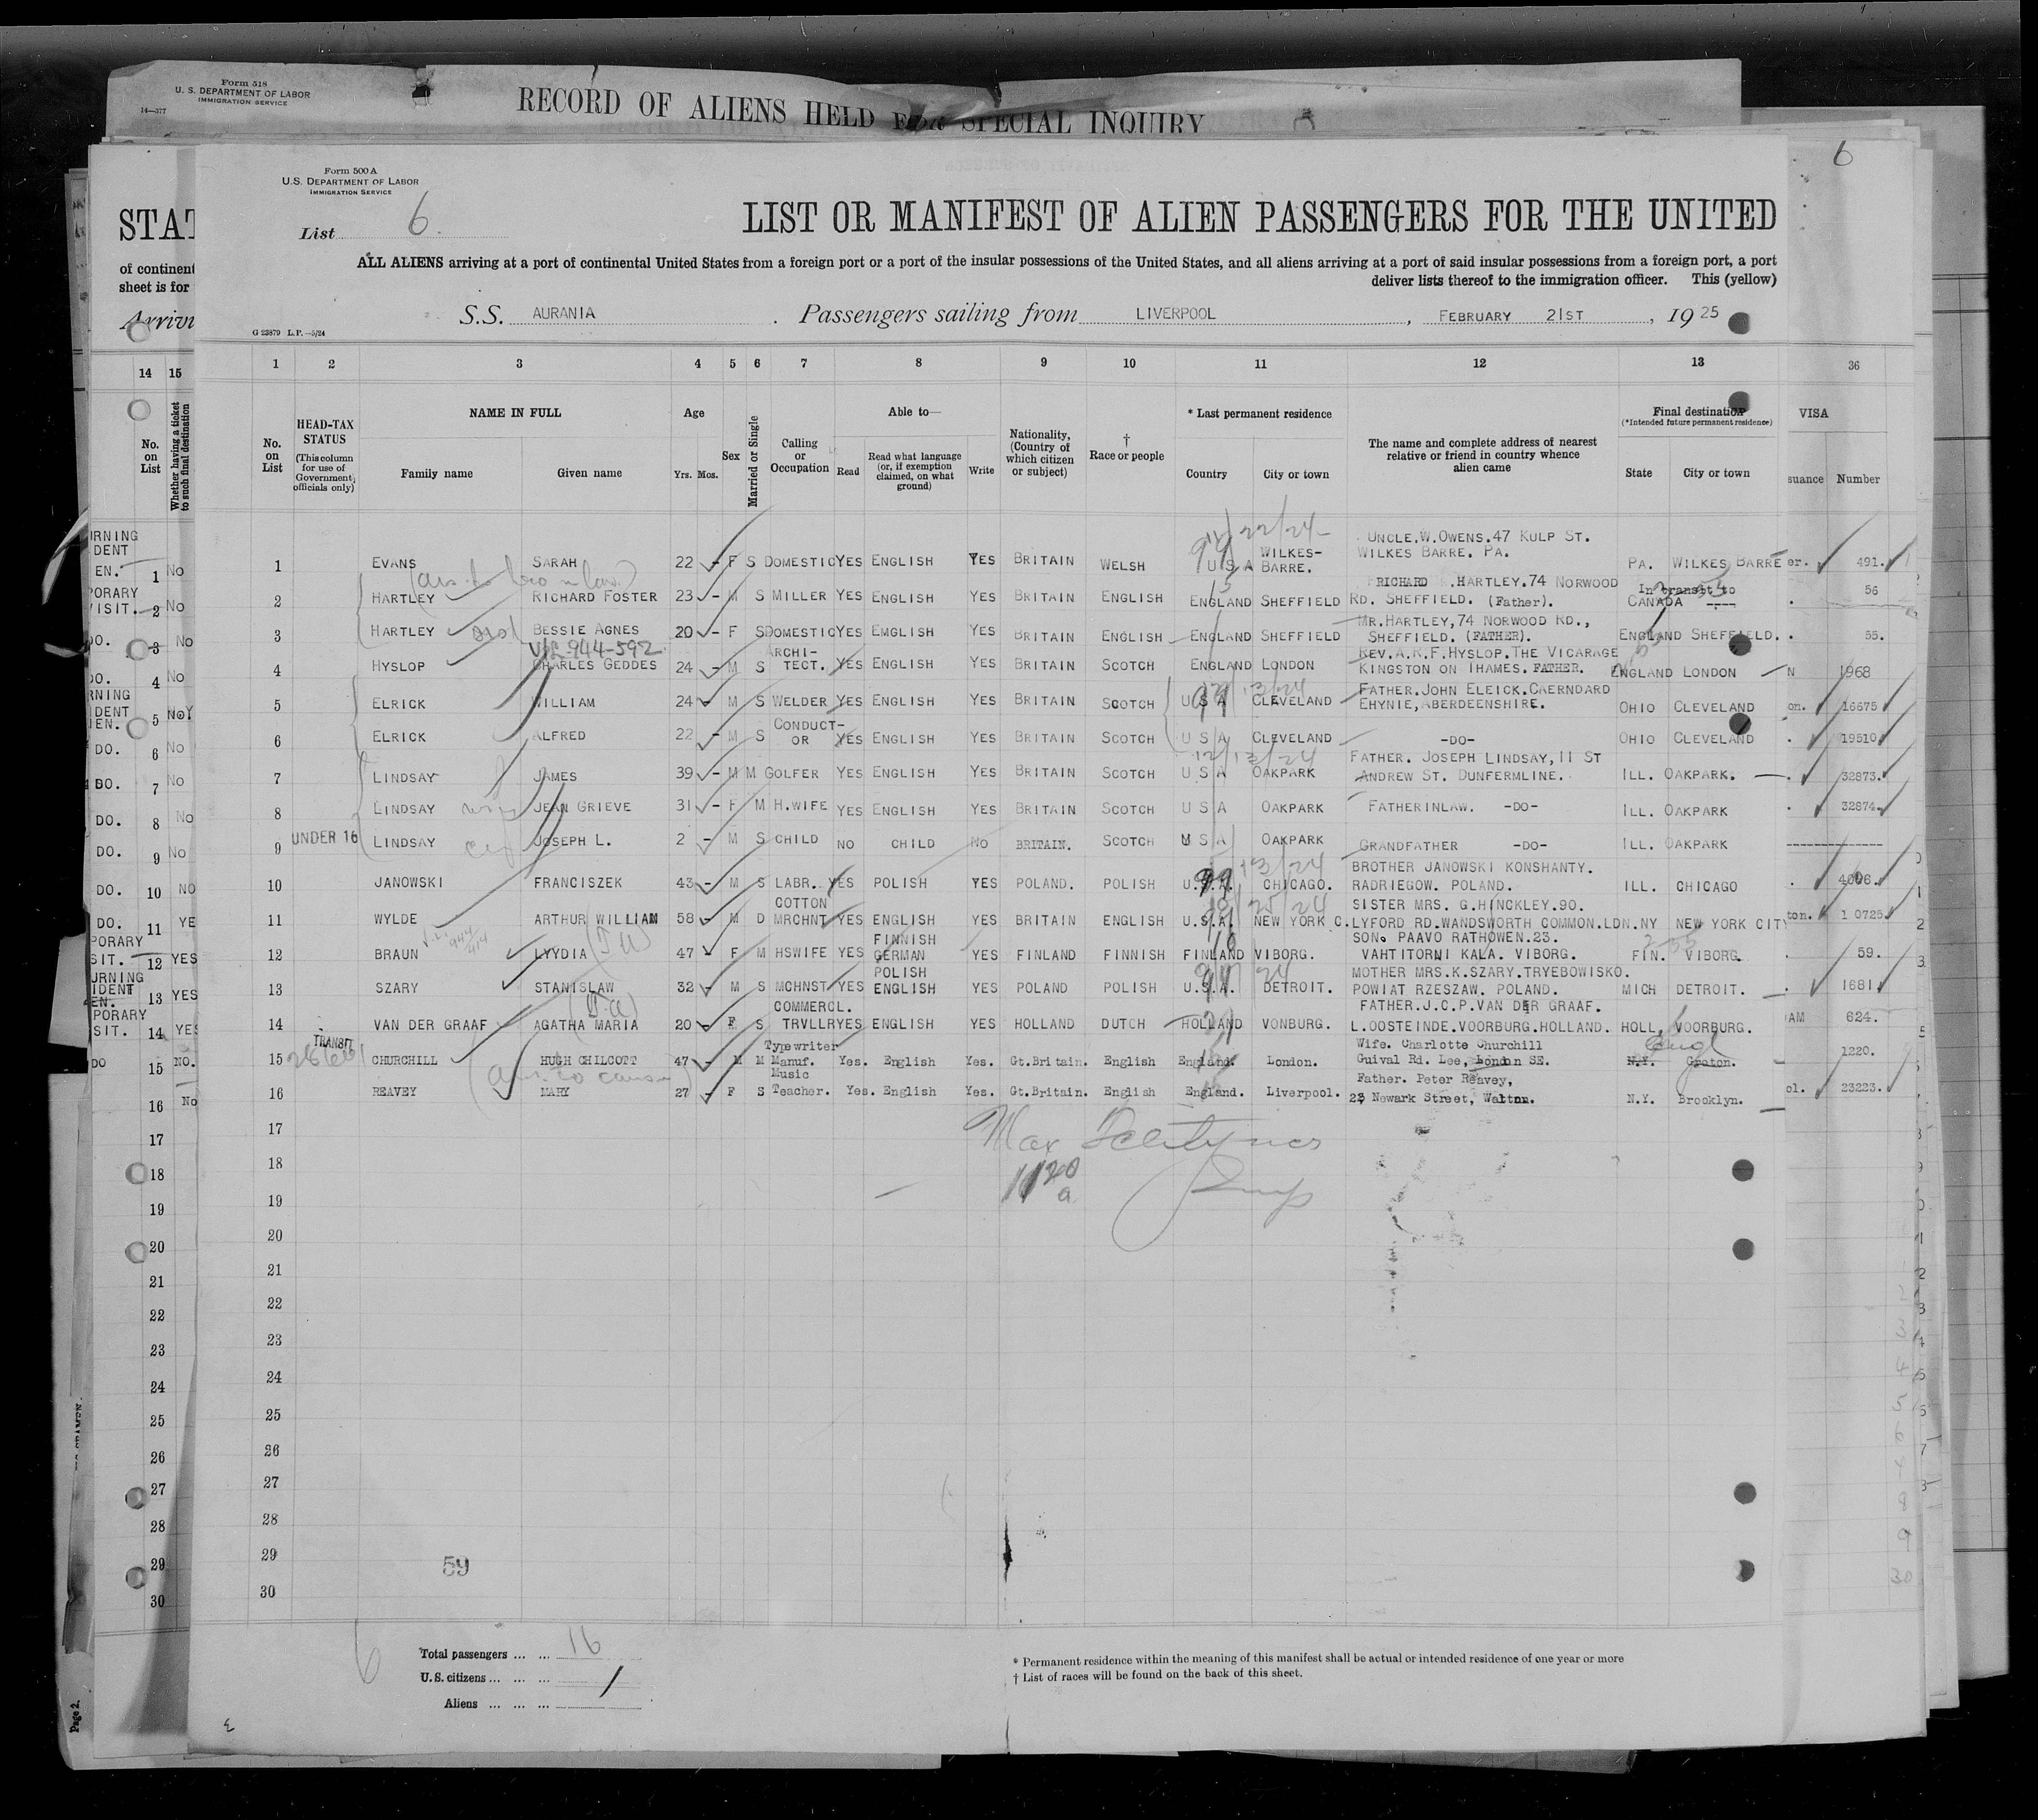 Form 518
U. S. DEPARTMENT OF LABOR
IMMIGRATION SERVICE
14—377
RECORD OF ALIENS HELD FOR SPECIAL INQUIRY
6
Form 500 A
U.S. DEPARTMENT OF LABOR
IMMIGRATION SERVICE
List 6.
STAT
LIST OR MANIFEST OF ALIEN PASSENGERS FOR THE UNITED
of continent
sheet is for
ALL ALIENS arriving at a port of continental United States from a foreign port or a port of the insular possessions of the United States, and all aliens arriving at a port of said insular possessions from a foreign port, a port
deliver lists thereof to the immigration officer. This (yellow)
Arrivi
S.S. AURANIA. Passengers sailing from LIVERPOOL, FEBRUARY 21ST, 19 25
G 23879 L.P.—5/24
14 15 1 2 3 4 5 6 7 8 9 10 11 12 13 36
No. on List
Whether having a ticket to such final destination
No. on List
HEAD-TAX STATUS
(This column for use of Government officials only)
NAME IN FULL
Family name Given name
Age
Yrs. Mos.
Sex
Married or Single
Calling or Occupation
Able to—
Read
Read what language (or, if exemption claimed, on what ground)
Write
Nationality, (Country of which citizen or subject)
† Race or people
* Last permanent residence
Country City or town
The name and complete address of nearest relative or friend in country whence alien came
Final destination
(*Intended future permanent residence)
State City or town
VISA
suance Number
1 EVANS SARAH 22 - F S DOMESTIC YES ENGLISH YES BRITAIN WELSH U S A WILKES-BARRE. UNCLE.W.OWENS.47 KULP ST. WILKES BARRE. PA. PA. WILKES BARRE er. 491.
2 HARTLEY RICHARD FOSTER 23 - M S MILLER YES ENGLISH YES BRITAIN ENGLISH ENGLAND SHEFFIELD RICHARD .HARTLEY.74 NORWOOD RD. SHEFFIELD. (Father). In transit to CANADA ---- 56
3 HARTLEY BESSIE AGNES 20 - F S DOMESTIC YES EMGLISH YES BRITAIN ENGLISH ENGLAND SHEFFIELD MR.HARTLEY,74 NORWOOD RD., SHEFFIELD. (FATHER). ENGLAND SHEFFIELD. 55.
944-592
4 HYSLOP CHARLES GEDDES 24 - M S ARCHI-TECT. YES ENGLISH YES BRITAIN SCOTCH ENGLAND LONDON REV.A.R.F.HYSLOP.THE VICARAGE KINGSTON ON THAMES. FATHER. ENGLAND LONDON N 1968
5 ELRICK WILLIAM 24 M S WELDER YES ENGLISH YES BRITAIN SCOTCH U S A CLEVELAND FATHER.JOHN ELEICK.CAERNDARD EHYNIE,ABERDEENSHIRE. OHIO CLEVELAND on. 16675
6 ELRICK ALFRED 22 - M S CONDUCT-OR YES ENGLISH YES BRITAIN SCOTCH U S A CLEVELAND -DO- OHIO CLEVELAND 19510
7 LINDSAY JAMES 39 - M M GOLFER YES ENGLISH YES BRITAIN SCOTCH U S A OAKPARK FATHER. JOSEPH LINDSAY,11 ST ANDREW ST. DUNFERMLINE. ILL. OAKPARK. 32873.
8 LINDSAY wife JEAN GRIEVE 31 - F M H.WIFE YES ENGLISH YES BRITAIN SCOTCH U S A OAKPARK FATHERINLAW. -DO- ILL. OAKPARK 32874.
9 UNDER 16 LINDSAY JOSEPH L. 2 - M S CHILD NO CHILD NO BRITAIN. SCOTCH U S A OAKPARK GRANDFATHER -DO- ILL. OAKPARK
10 JANOWSKI FRANCISZEK 43 - M S LABR. YES POLISH YES POLAND. POLISH U.S.A. CHICAGO. BROTHER JANOWSKI KONSHANTY. RADRIEGOW. POLAND. ILL. CHICAGO 4006.
11 WYLDE ARTHUR WILLIAM 58 - M D COTTON MRCHNT YES ENGLISH YES BRITAIN ENGLISH U.S.A. NEW YORK C. SISTER MRS. G.HINCKLEY.90. LYFORD RD.WANDSWORTH COMMON.LDN. NY NEW YORK CITY ton. 1 0725
12 BRAUN LYYDIA 47 F M HSWIFE YES FINNISH GERMAN YES FINLAND FINNISH FINLAND VIBORG. SON. PAAVO RATHOWEN.23. VAHTITORNI KALA. VIBORG. FIN. VIBORG. 59.
13 SZARY STANISLAW 32 - M S MCHNST YES POLISH ENGLISH YES POLAND POLISH U.S.A. DETROIT. MOTHER MRS.K.SZARY.TRYEBOWISKO. POWIAT RZESZAW. POLAND. MICH DETROIT. 1681.
14 VAN DER GRAAF AGATHA MARIA 20 - F S COMMERCL. TRVLLR YES ENGLISH YES HOLLAND DUTCH HOLLAND VONBURG. FATHER.J.C.P.VAN DER GRAAF. L.OOSTEINDE.VOORBURG.HOLLAND. HOLL. VOORBURG. AM 624.
15 TRANSIT CHURCHILL HUGH CHILCOTT 47 - M M Typewriter Manuf. Yes. English Yes. Gt.Britain. English England. London. Wife. Charlotte Churchill Guival Rd. Lee, London SE. N.Y. Groton. Engl 1220.
16 REAVEY MARY 27 - F S Music Teacher. Yes. English Yes. Gt.Britain. English England. Liverpool. Father. Peter Reavey, 23 Newark Street, Walton. N.Y. Brooklyn. ol. 23223.
17
18
19
20
21
22
23
24
25
26
27
28
29
30
59
Total passengers ... ... 16
U.S. citizens ... ... ...
Aliens ... ... ...
* Permanent residence within the meaning of this manifest shall be actual or intended residence of one year or more
† List of races will be found on the back of this sheet.
Page 2.